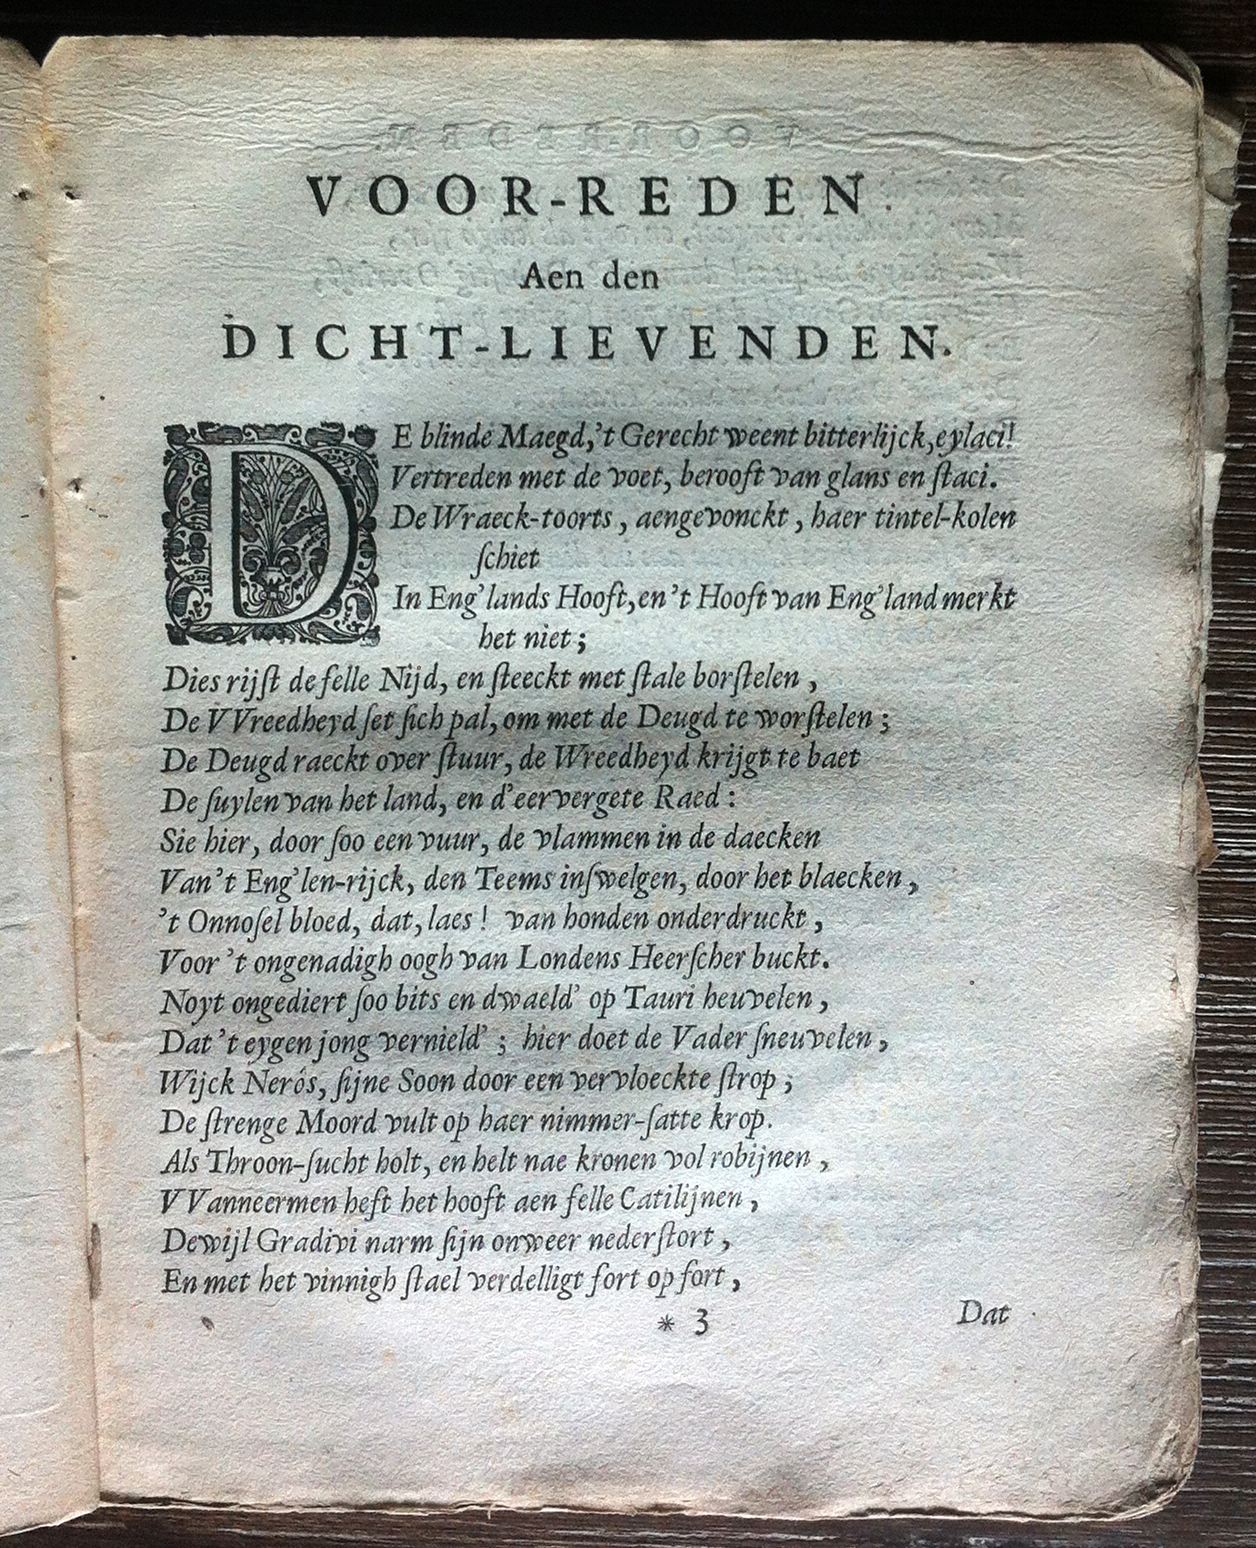 VOOR-REDEN.
Aen den
DICHT-LIEVENDEN.
DE blinde Maegd,'t Gerecht weent bitterlijck,eylaci!
Vertreden met de voet, berooft van glans en ſtaci.
De Wraeck-toorts, aengevonckt, haer tintel-kolen
ſchiet
In Eng'lands Hooft, en 't Hooft van Eng'land merkt
het niet;
Dies rijſt de felle Nijd, en ſteeckt met ſtale borſtelen,
De VVreedheyd ſet ſich pal, om met de Deugd te worſtelen;
De Deugd raeckt over ſtuur, de Wreedheyd krijgt te baet
De ſuylen van het land, en d'eervergete Raed:
Sie hier, door ſoo een vuur, de vlammen in de daecken
Van't Eng'len-rijck, den Teems inſwelgen, door het blaecken,
't Onnoſel bloed, dat, laes! van honden onderdruckt,
Voor 't ongenadigh oogh van Londens Heerſcher buckt.
Noyt ongediert ſoo bits en dwaeld' op Tauri heuvelen,
Dat 't eygen jong vernield'; hier doet de Vader ſneuvelen,
Wijck Nerós, ſijne Soon door een vervloeckte ſtrop;
De ſtrenge Moord vult op haer nimmer-ſatte krop.
Als Throon-ſucht holt, en helt nae kronen vol robijnen,
VVanneermen heft het hooft aen felle Catilijnen,
Dewijl Gradivi narm ſijn onweer nederſtort,
En met het vinnigh ſtael verdelligt fort op fort,
* 3
Dat